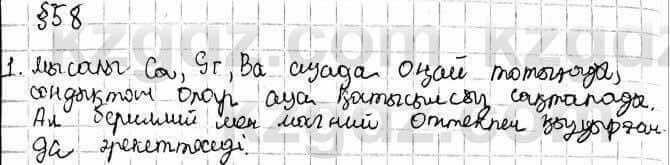 §58
1. мысалы Ca, Sr, Ba ауада оңай тотығады,
сондықтан олар ауа қатысынсыз сақталады.
Ал бериллий мен магний оттекпен қыздырған-
да әрекеттеседі.